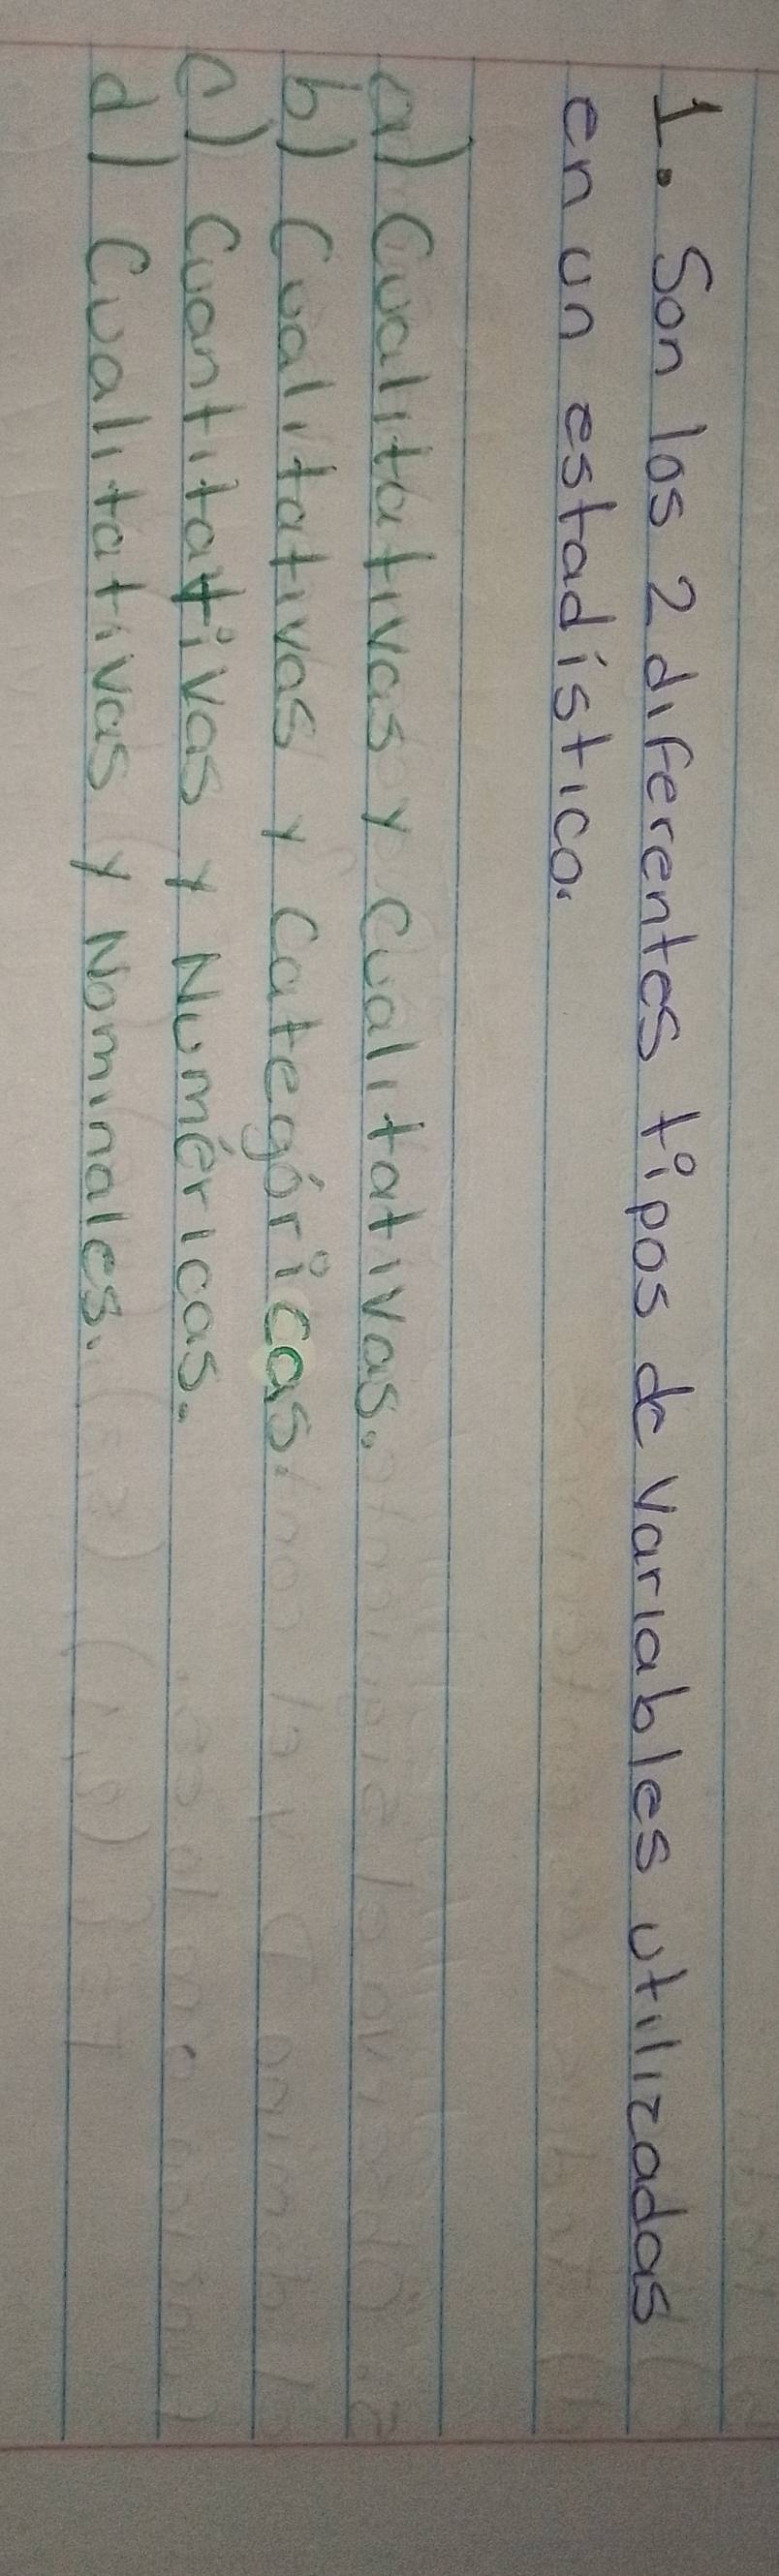 1. Son los 2 diferentes tipos de variables utilizadas
en un estadístico.
a) Cualitativas y cualitativas.
b) Cualitativas y Categóricas.
c) Cuantitativas y Numéricas.
d) Cualitativas y Nominales.